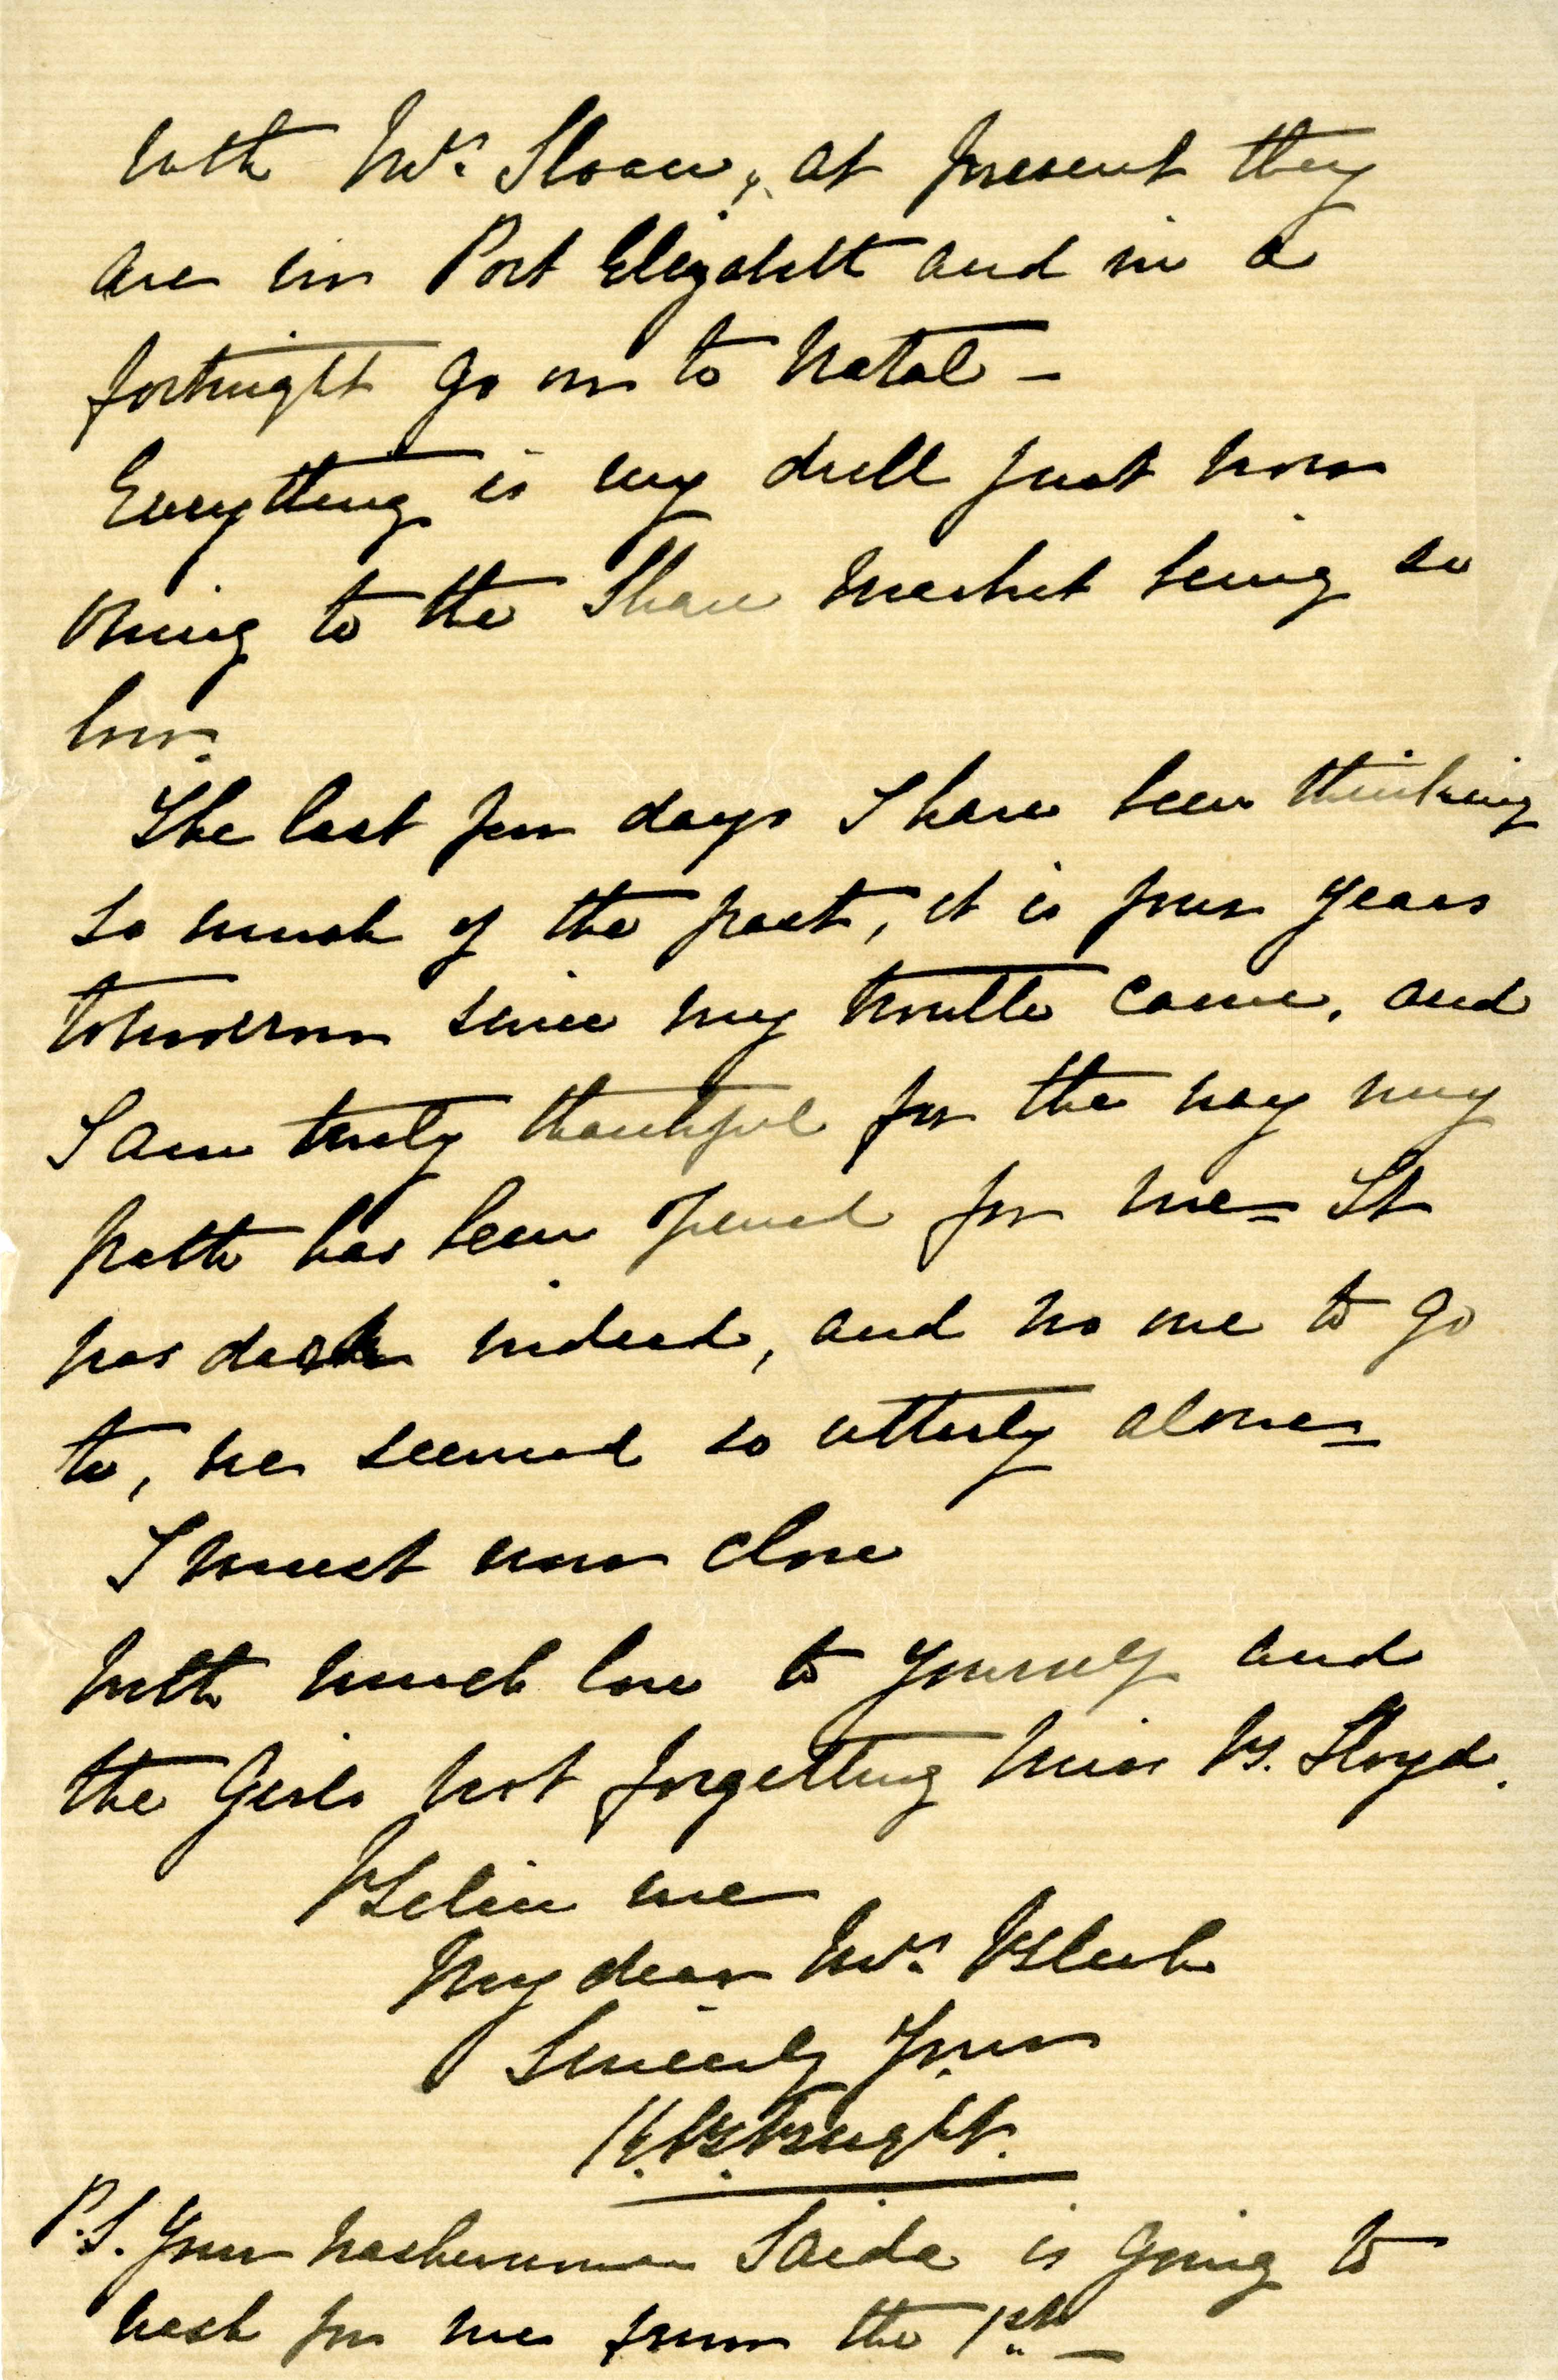 with Mrs. Sloan, at present they
are in Port Elizabeth and in a
fortnight go on to Natal -
Everything is very dull just now
owing to the Share Market being so
low.
The last few days I have been thinking
so much of the past, it is four years
tomorrow since my trouble came, and
I am truly thankful for the way my
path has been opened for me = It
was dark indeed, and no one to go
to, we seemed so utterly alone =
I must now close
With much love to yourself and
the Girls not forgetting Miss B. Lloyd.
Believe me
My dear Mrs. Bleek
Sincerely Yours
Bright.
P.S. Your washerwoman Saida is going to
wash for me from the 1st -